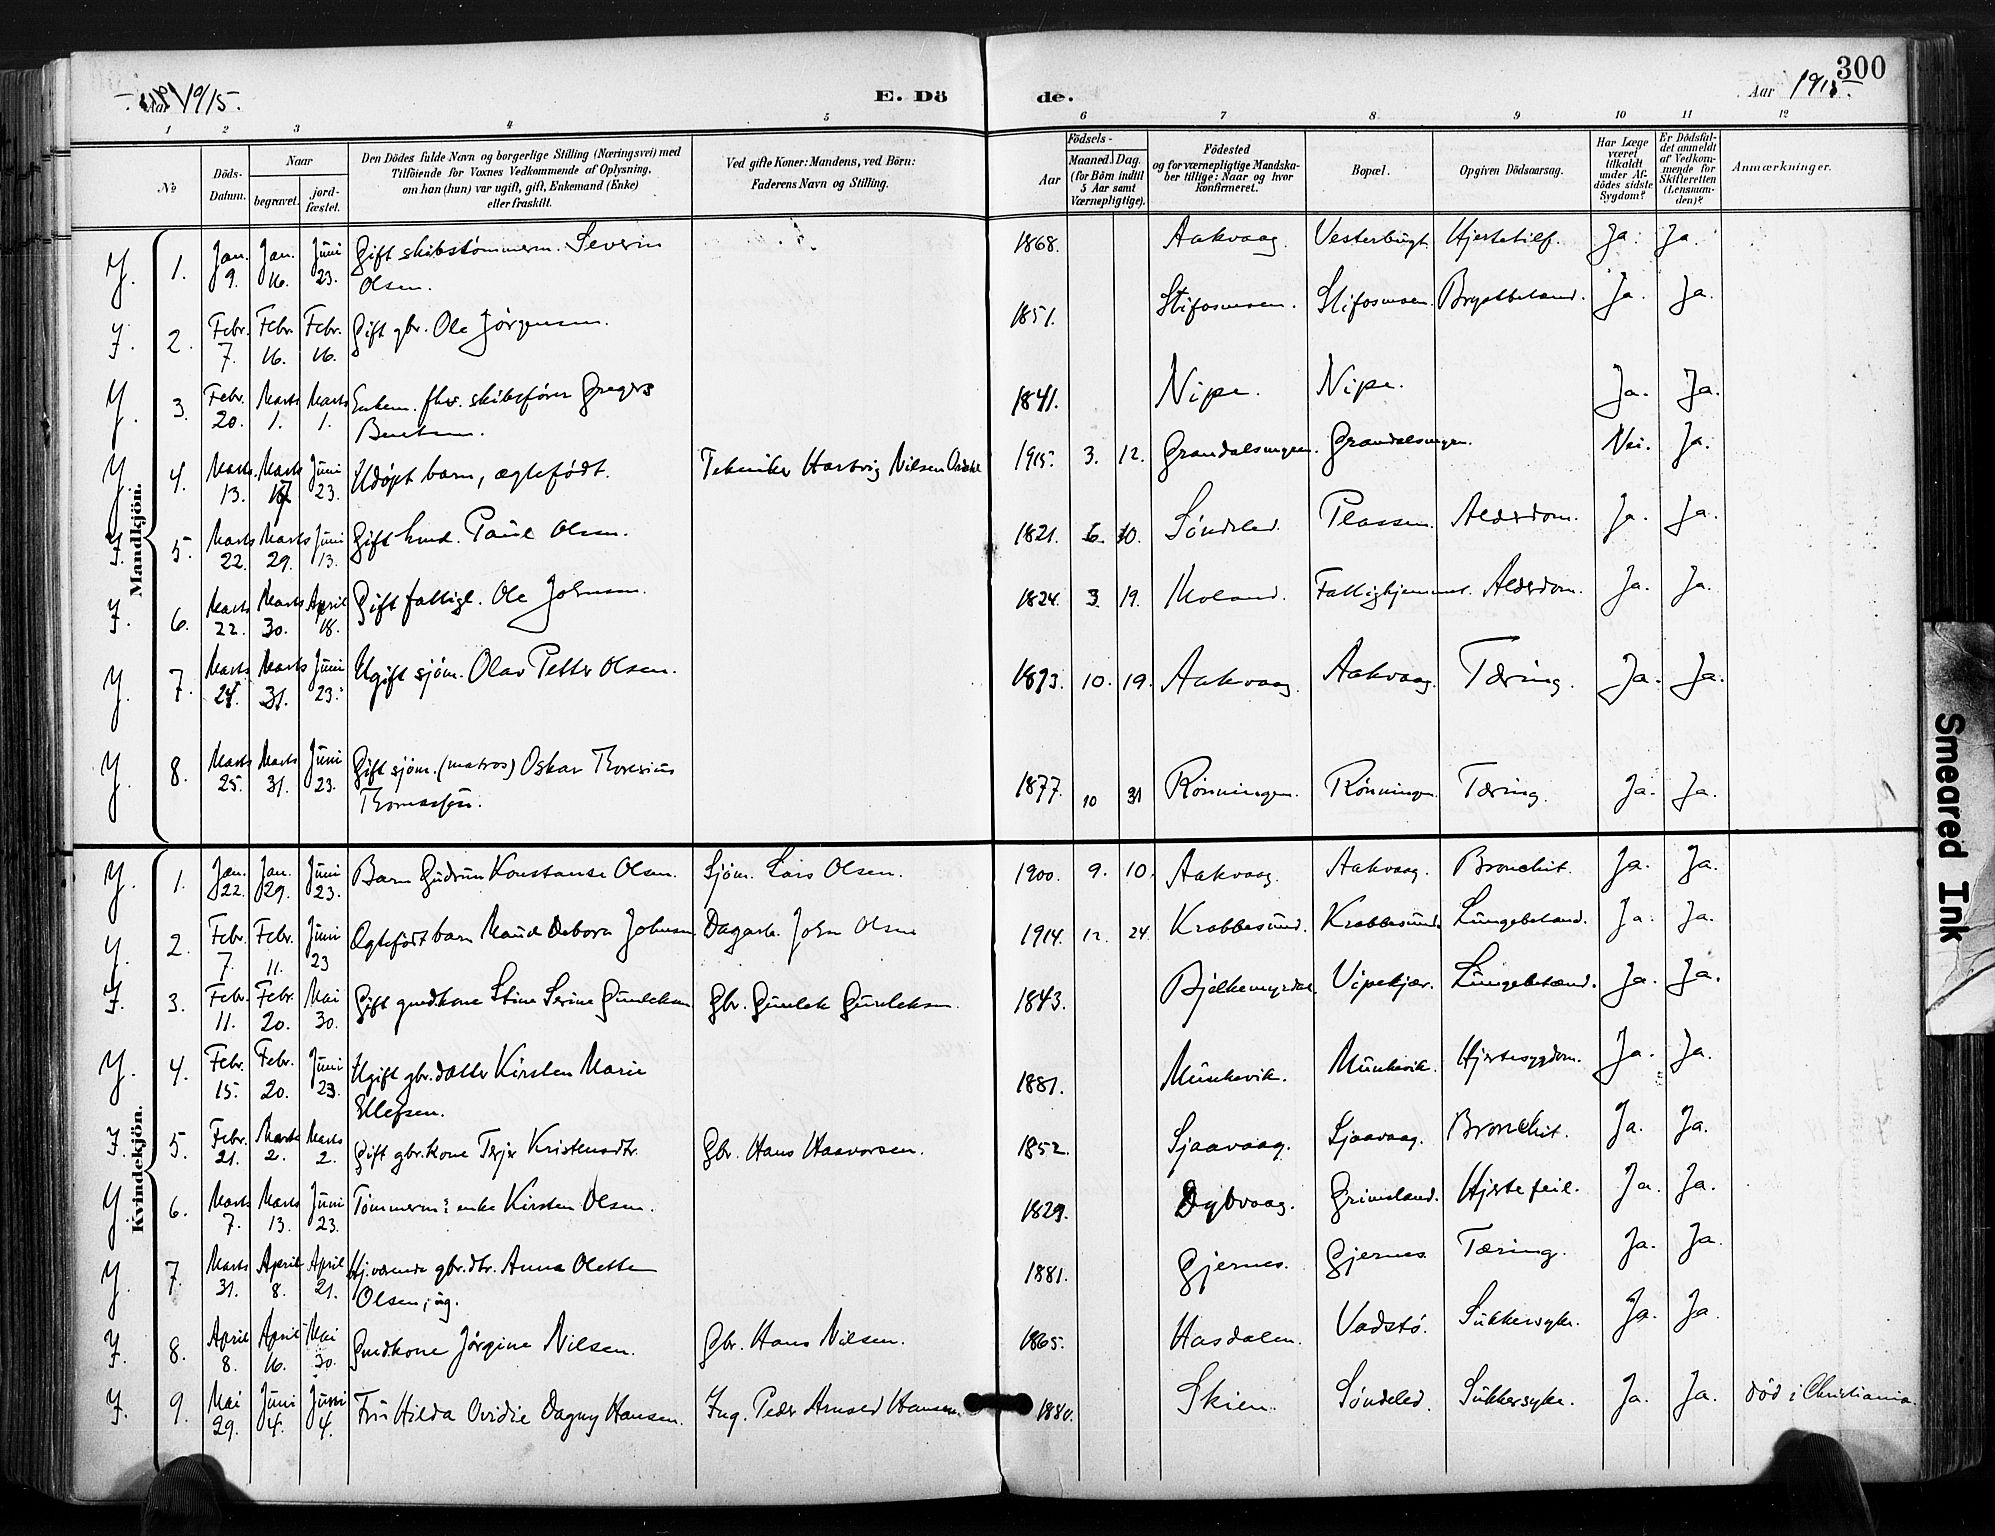 Aar 1915.
E. Dö
de.
Aar 1915.
300
1 2 3 4 5 6 7 8 9 10 11 12
№
Döds-Datum.
Naar
begravet.
jord-fæstet.
Den Dödes fulde Navn og borgerlige Stilling (Næringsvei) med
Tilföiende for Voxnes Vedkommende af Oplysning,
om han (hun) var ugift, gift, Enkemand (Enke)
eller fraskilt.
Ved gifte Koner: Mandens, ved Börn:
Faderens Navn og Stilling.
Födsels-
Aar
Maaned. Dag.
(for Börn indtil
5 Aar samt
Værnepligtige).
Födested
og for værnepligtige Mandska-
ber tillige: Naar og hvor
Konfirmeret.
Bopæl.
Opgiven Dödsaarsag.
Har Læge
været
tilkaldt
under Af-
dödes sidste
Sygdom?
Er Dödsfal-
det anmeldt
af Vedkom-
mende for
Skifteretten
(Lensman-
den)?
Anmærkninger.
Mandkjön.
Y. 1. Jan. 9. Jan. 16. Juni 23. Gift skibstømmerm. Severin Olsen. 1868. Aakvaag. Vesterbugt. Hjertetilf. Ja. Ja.
I. 2. Febr. 7. Febr. 16. Febr. 16. Gift gbr. Ole Jørgensen. 1851. Stifosmoen. Stifosmoen. Brystbetænd. Ja. Ja.
Y. 3. Febr. 20. Marts 1. Marts 1. Enkem. fhv. skibsfører Gregers 1841. Nipe. Nipe. Ja. Ja.
Y. 4. Marts 13. Marts 17 Juni 23. Udøpt barn, ægtefødt. Tekniker Hartvig Nilsen 1915. 3. 12. Grandalsmyren. Grandalsmyren. Nei. Ja.
I. 5. Marts 22. Marts 29. Juni 13. Gift kmd. Paul Olsen. 1821. 6. 10. Søndeled. Plassen. Alderdom. Ja. Ja.
I. 6. Marts 22. Marts 30. April 18. Gift fattigl. Ole Johnsen. 1824. 3. 19. Moland. Fattighjemmet. Alderdom. Ja. Ja.
Y. 7. Marts 24. Marts 31. Juni 23. Ugift sjøm. Olav Petter Olsen. 1893. 10. 19. Aakvaag. Aakvaag. Tæring. Ja. Ja.
Y. 8. Marts 25. Marts 31. Juni 23. Gift sjøm. (matros) Oskar Thoresius Thomassen. 1877. 10 31 Rønningen. Rønningen. Tæring. Ja. Ja.
Kvindekjön.
Y. 1. Jan. 22. Jan. 29. Juni 23. Barn Gudrun Konstanse Olsen. Sjøm. Lars Olsen. 1900. 9. 10. Aakvaag. Aakvaag. Bronchit. Ja. Ja.
Y. 2. Febr. 7. Febr. 11. Juni 23 Ægtefødt barn Maud Debora Johnsen Dagarb. John Olsen 1914. 12. 24. Krabbesund. Krabbesund. Lungebetænd. Ja. Ja.
I. 3. Febr. 11. Febr. 20. Mai 30. Gift gmdkone Stine Serine Gunleksen Gbr. Gunlek Gunleksen. 1843. Bjelkemyrdal. Vipekjær. Lungebetænd. Ja. Ja.
Y. 4. Febr. 15. Febr. 20. Juni 23. Ugift gbr.datter Kirsten Marie Ellefsen. 1881. Munkevik. Munkevik. Hjertesygdom. Ja. Ja.
I. 5. Febr. 21. Marts 2. Marts 2. Gift gbr.kone Terjer Kristensdtr. Gbr. Hans Haavorsen. 1852. Sjaavaag. Sjaavaag. Bronchit. Ja. Ja.
Y. 6. Marts 7. Marts 13. Juni 23. Tømmerm: enke Kirsten Olsen. 1829. Dybvaag. Grimsland. Hjertefeil. Ja. Ja.
Y. 7. Marts 31. April 8. April 21. Hj.værende gbr.dtr. Anna Olette Olsen, ug. 1881. Gjernes. Gjernes. Tæring. Ja. Ja.
I. 8. April 8. April 16. Mai 30. Gmdkone Jørgine Nilsen. Gbr. Hans Nilsen. 1865. Hasdalen. Vadstø. Sukkersyke. Ja. Ja.
I. 9. Mai 29. Juni 4. Juni 4. Fru Hilda Ovidie Dagny Hansen. Ing. Peder Arnsed Hansen. 1880. Skien. Søndeled. Sukkersyke. Ja. Ja. død i Christiania.
Smeared Ink